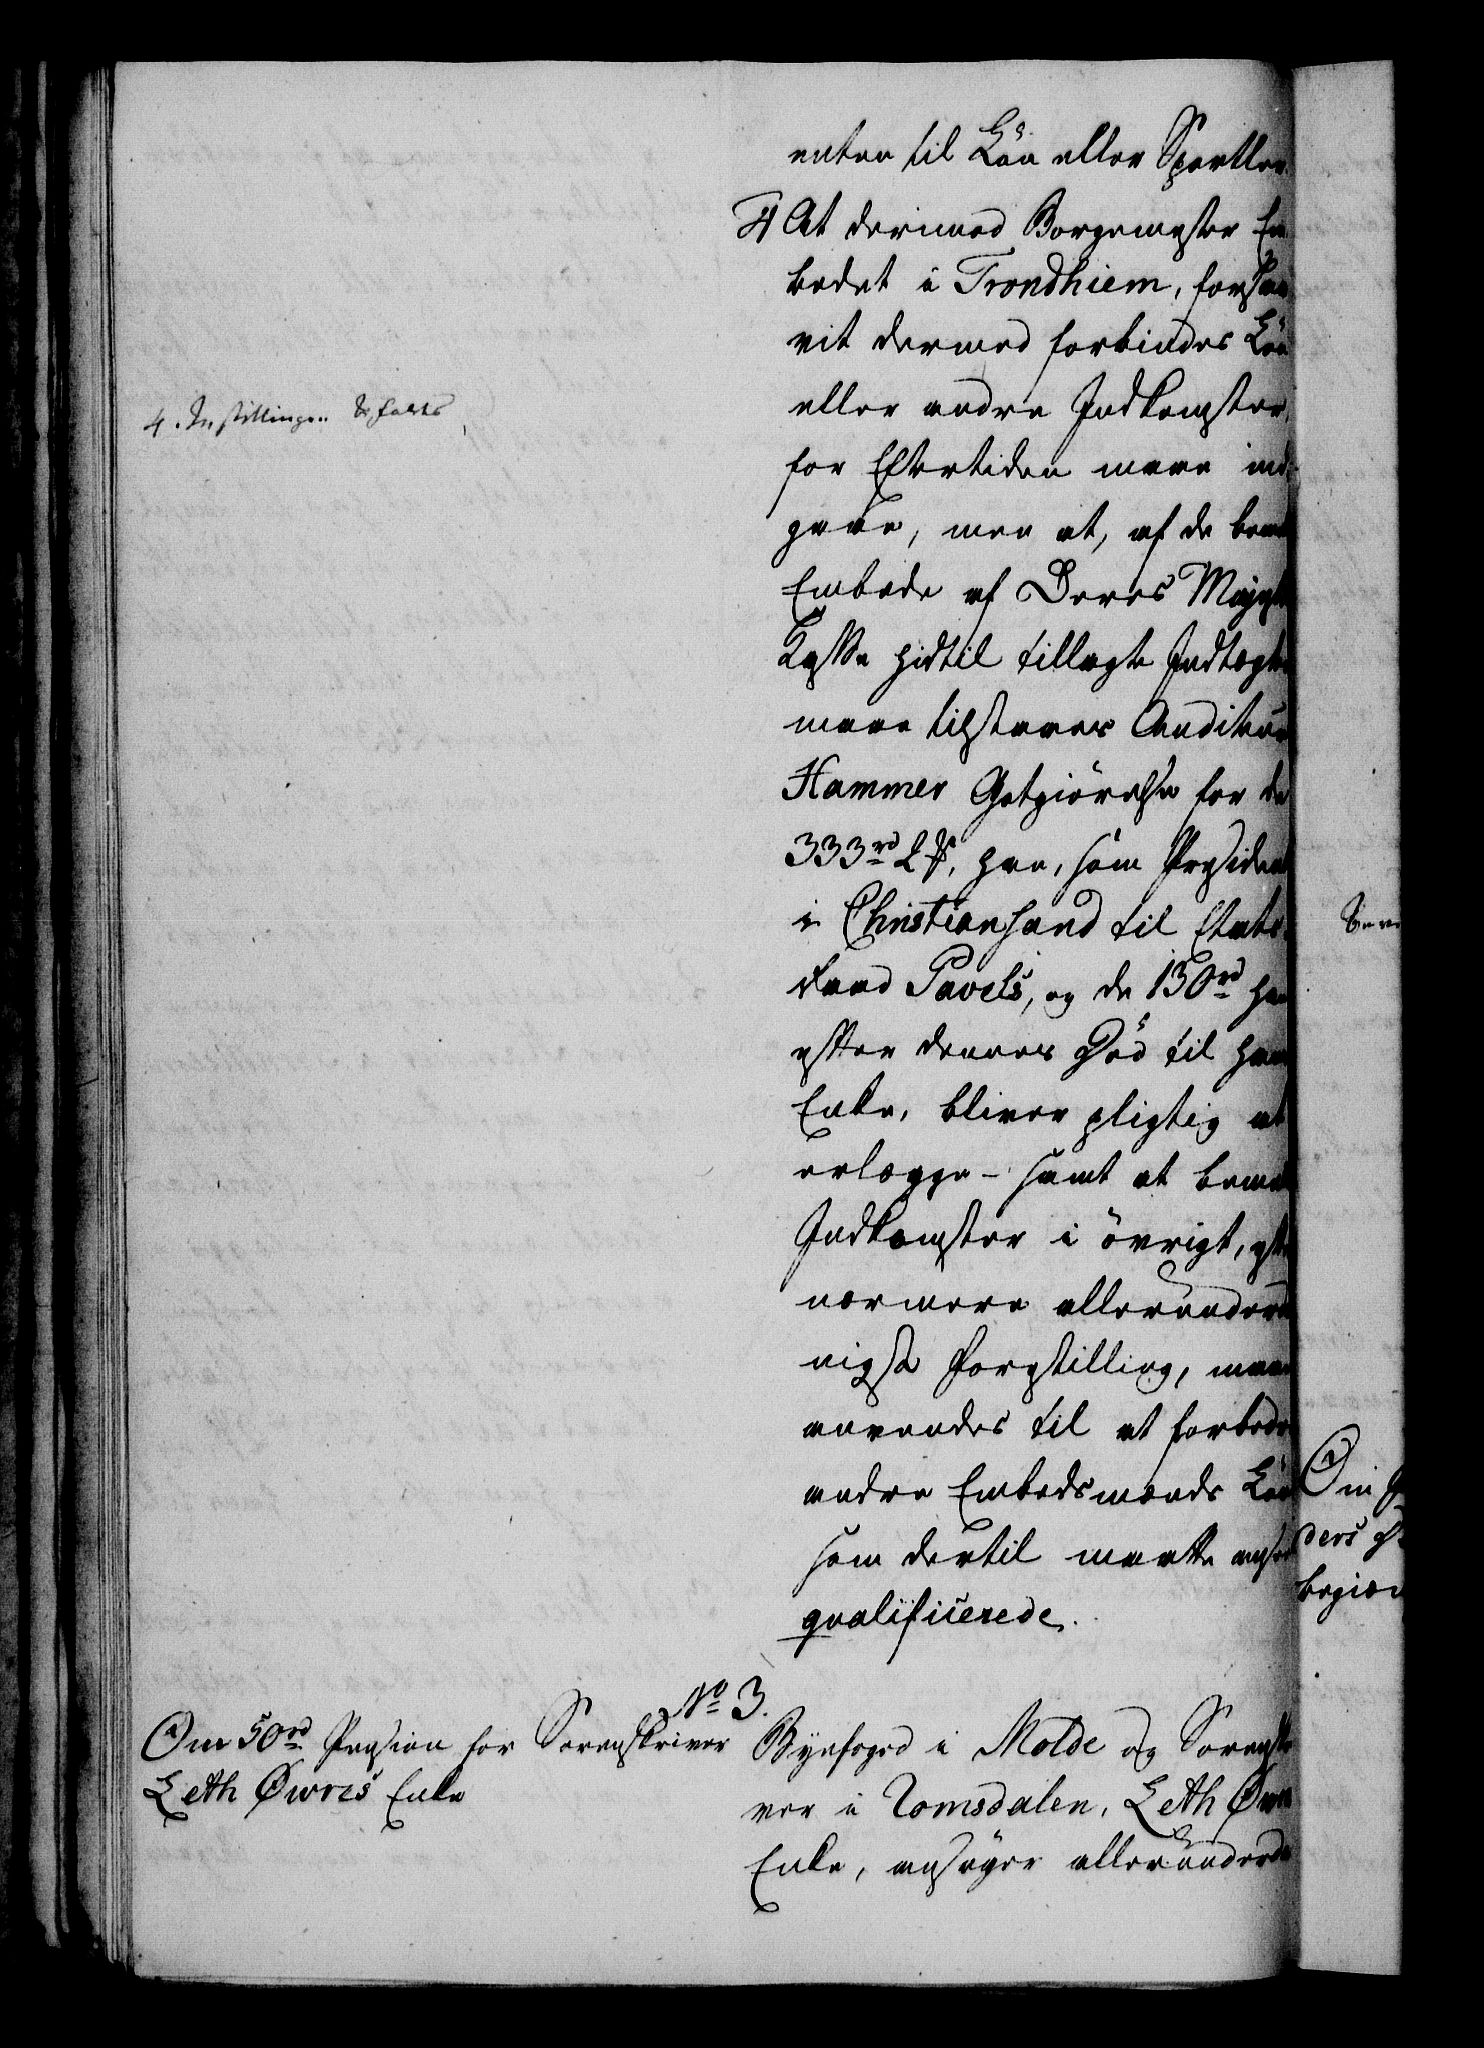 enten til Løn eller Sportler.
4 At derimod Borgemester Em
bedet i Trondhiem, forsaa
vit dermed forbindes Løn
eller andre Indkomster,
for Eftertiden maae ind
gaae, men at, af de bem
Embede af Deres Majest
Kasse hidtil tillagte Indtægte
maae tilstaaes Auditeur
Hammer Godtgiörelse for de
333rd 2 ß, han, som Præsident
i Christiansand til Etats
Raad Pavels, og de 150rd han
efter dennes Död til hans
Enke, bliver pligtig at
erlægge – samt at bem
Indkomster i övrigt, efter
nærmere allerunderd
nigst Forestilling, maae
anvendes til at forbedre
andre Embedsmænds Løn
som dertil maatte ansees
qvalificerede.
4. Indstillingen befales
No 3.
Om 50rd Pension for Sorenskriver
Leth Øwres Enke
Byefoged i Molde og Sorenskri
ver i Romsdalen, Leth Øwres
Enke, ansøger allerunderda
Om
ders
begiær